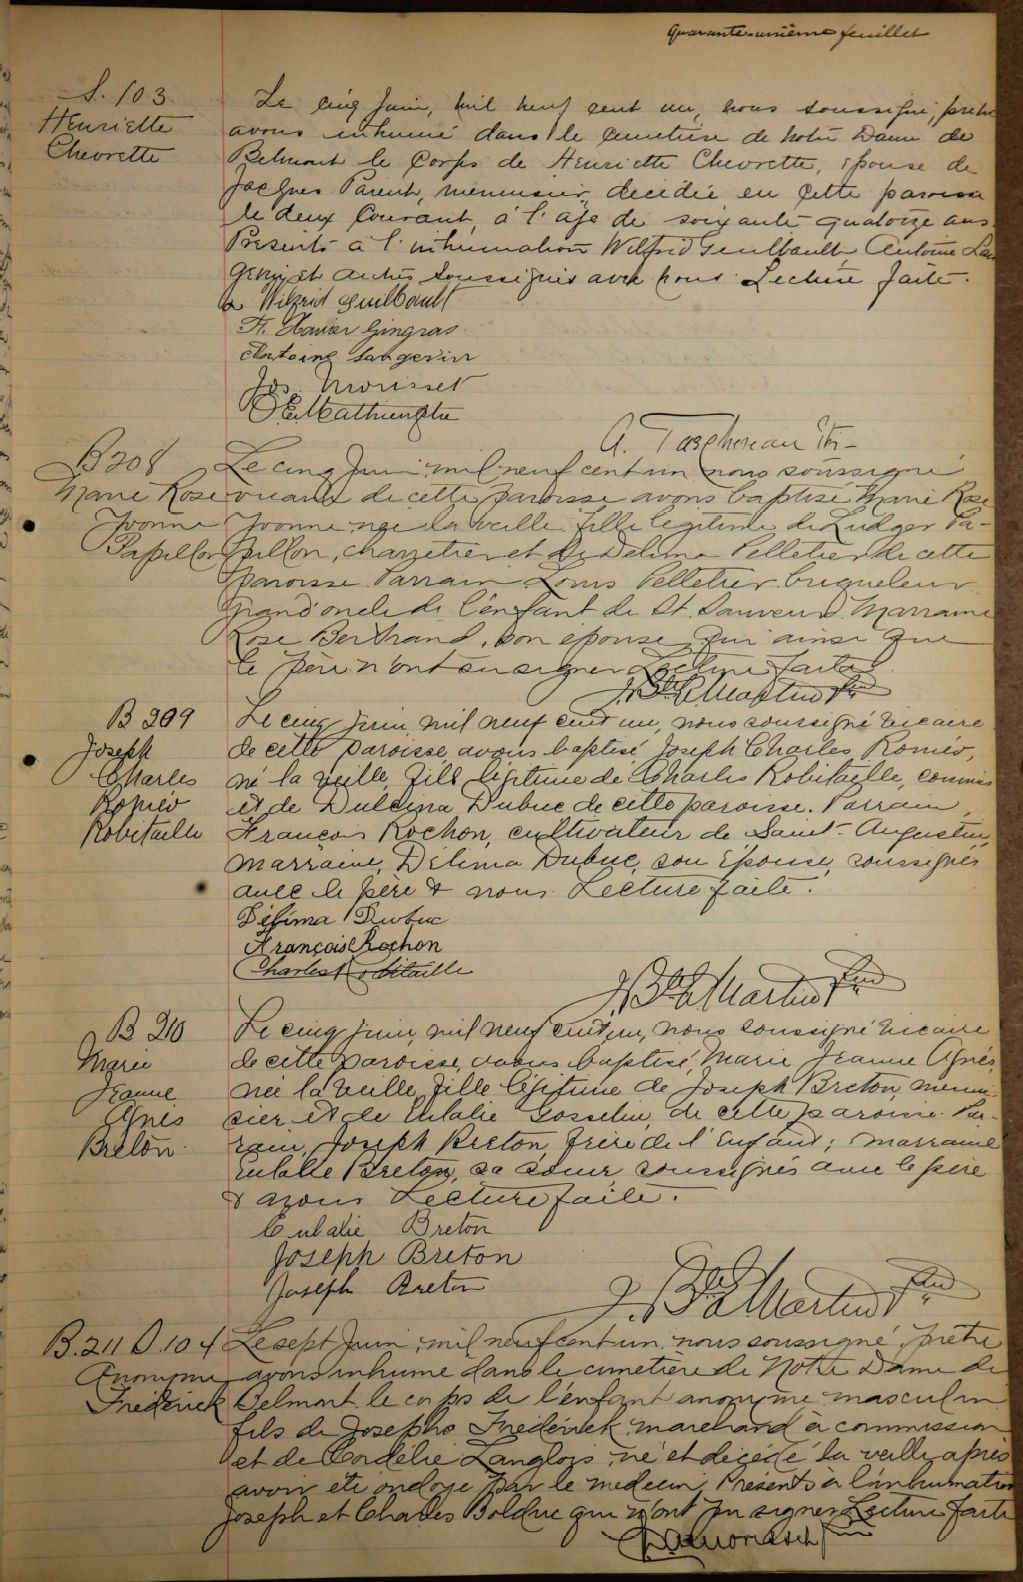 quarante-unième feuillet
S. 103
Henriette
Chevrette
Le cinq Juin, mil neuf cent un, nous soussigné, prêtre
avons inhumé dans le cimetière de Notre Dame de
Belmont le corps de Henriette Chevrette, épouse de
Jacques Parent, menuisier, décédée en cette paroisse
le deux Courant, à l'âge de soixante-quatorze ans.
Présents à l'inhumation Wilfrid Guilbault, Antoine Lan
gevin et autres soussignés avec nous. Lecture faite.
Wilfrid Guilbault
F. Xavier Gingras
Antoine Langevin
Jos. Morisset
A. Taschereau Ptr
B 208
Marie Rose
Yvonne
Papillon
Le cinq Juin mil neuf cent un nous soussigné
vicaire de cette paroisse avons baptisé Marie Rose
Yvonne née la veille fille légitime de Ludger Pa-
pillon, charretier et de Délima Pelletier de cette
paroisse Parrain Louis Pelletier briqueleur
grand'oncle de l'enfant de St. Sauveur Marraine
Rose Bertrand, son épouse qui ainsi que
le père n'ont su signer Lecture faite
J. Bte E. Martin
B 209
Joseph
Charles
Roméo
Robitaille
Le cinq juin mil neuf cent un, nous soussigné vicaire
de cette paroisse, avons baptisé Joseph Charles Roméo,
né la veille, fils légitime de Charles Robitaille, commis
et de Dulcina Dubuc de cette paroisse. Parrain,
François Rochon, cultivateur de Saint-Augustin,
marraine, Délima Dubuc, son épouse, soussignés
avec le père & nous. Lecture faite.
Délima Dubuc
François Rochon
Charles Robitaille
J. Bte E. Martin
B 210
Marie
Jeanne
Agnès
Breton
Le cinq juin, mil neuf cent un, nous soussigné vicaire
de cette paroisse, avons baptisé, Marie Jeanne Agnès,
née la veille, fille légitime de Joseph Breton, menui-
sier et de Eulalie Gosselin, de cette paroisse. Par-
rain, Joseph Breton, frère de l'enfant; marraine
Eulalie Breton, sa soeur, soussignés avec le père
& nous Lecture faite.
Eulalie Breton
Joseph Breton
Joseph Breton
J. Bte E. Martin
B. 211 S. 104
Anonyme
Frédérick
Le sept Juin, mil neuf cent un nous soussigné, prêtre
avons inhumé dans le cimetière de Notre Dame de
Belmont le corps de l'enfant anonyme masculin
fils de Josephs Frédérick marchand à commission
et de Cordélie Langlois, né et décédé la veille après
avoir été ondoyé par le médecin, Présents à l'inhumation
Joseph et Charles Bolduc qui n'ont pu signer Lecture faite